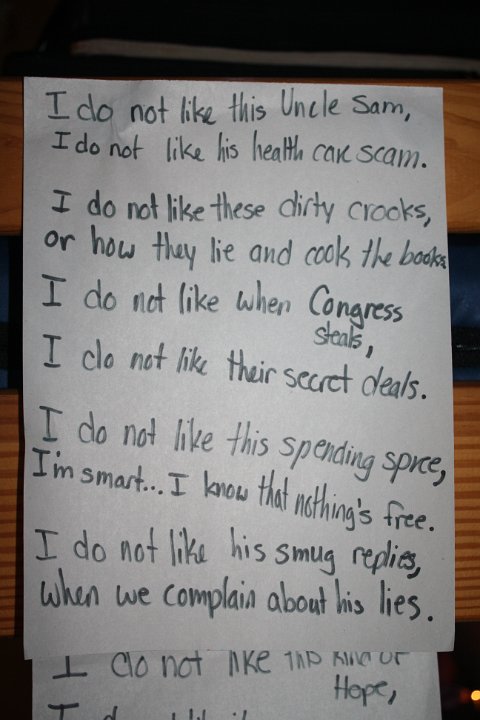 I do not like this Uncle Sam,
I do not like his health care scam.
I do not like these dirty crooks,
or how they lie and cook the books
I do not like when Congress
steals,
I do not like their secret deals.
I do not like this spending spree,
I'm smart... I know that nothing's free.
I do not like his smug replies,
when we complain about his lies.
I do not like this kind of
Hope,
I do